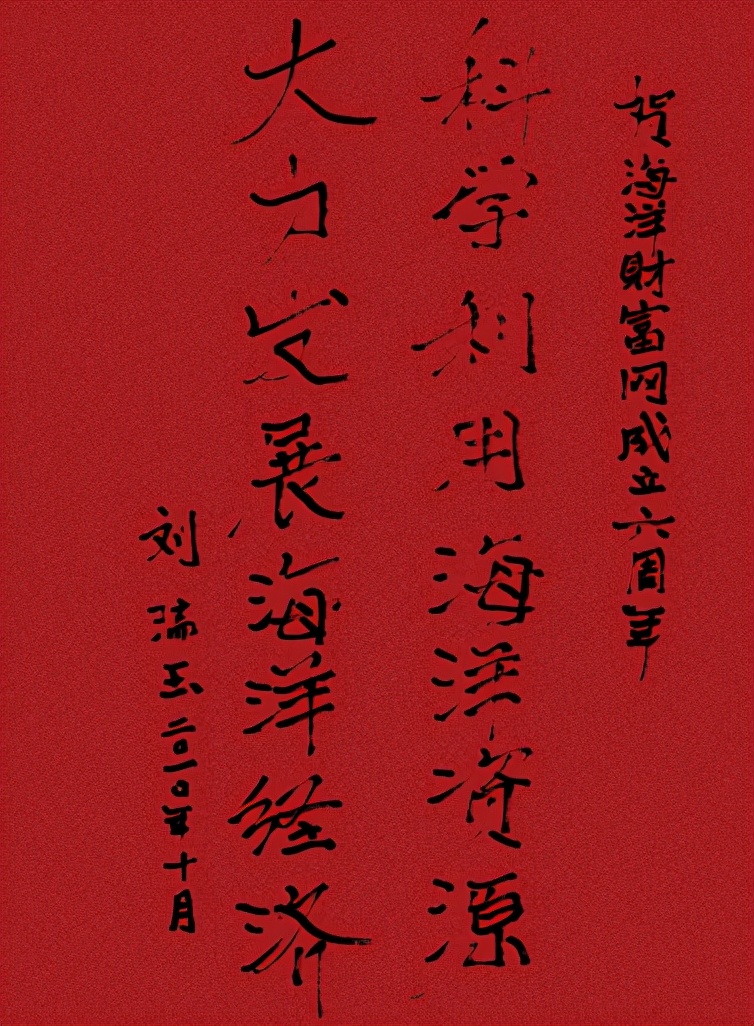 贺海洋财富网成立六周年
科学利用海洋资源
大力发展海洋经济
刘瑞玉二〇一〇年十月